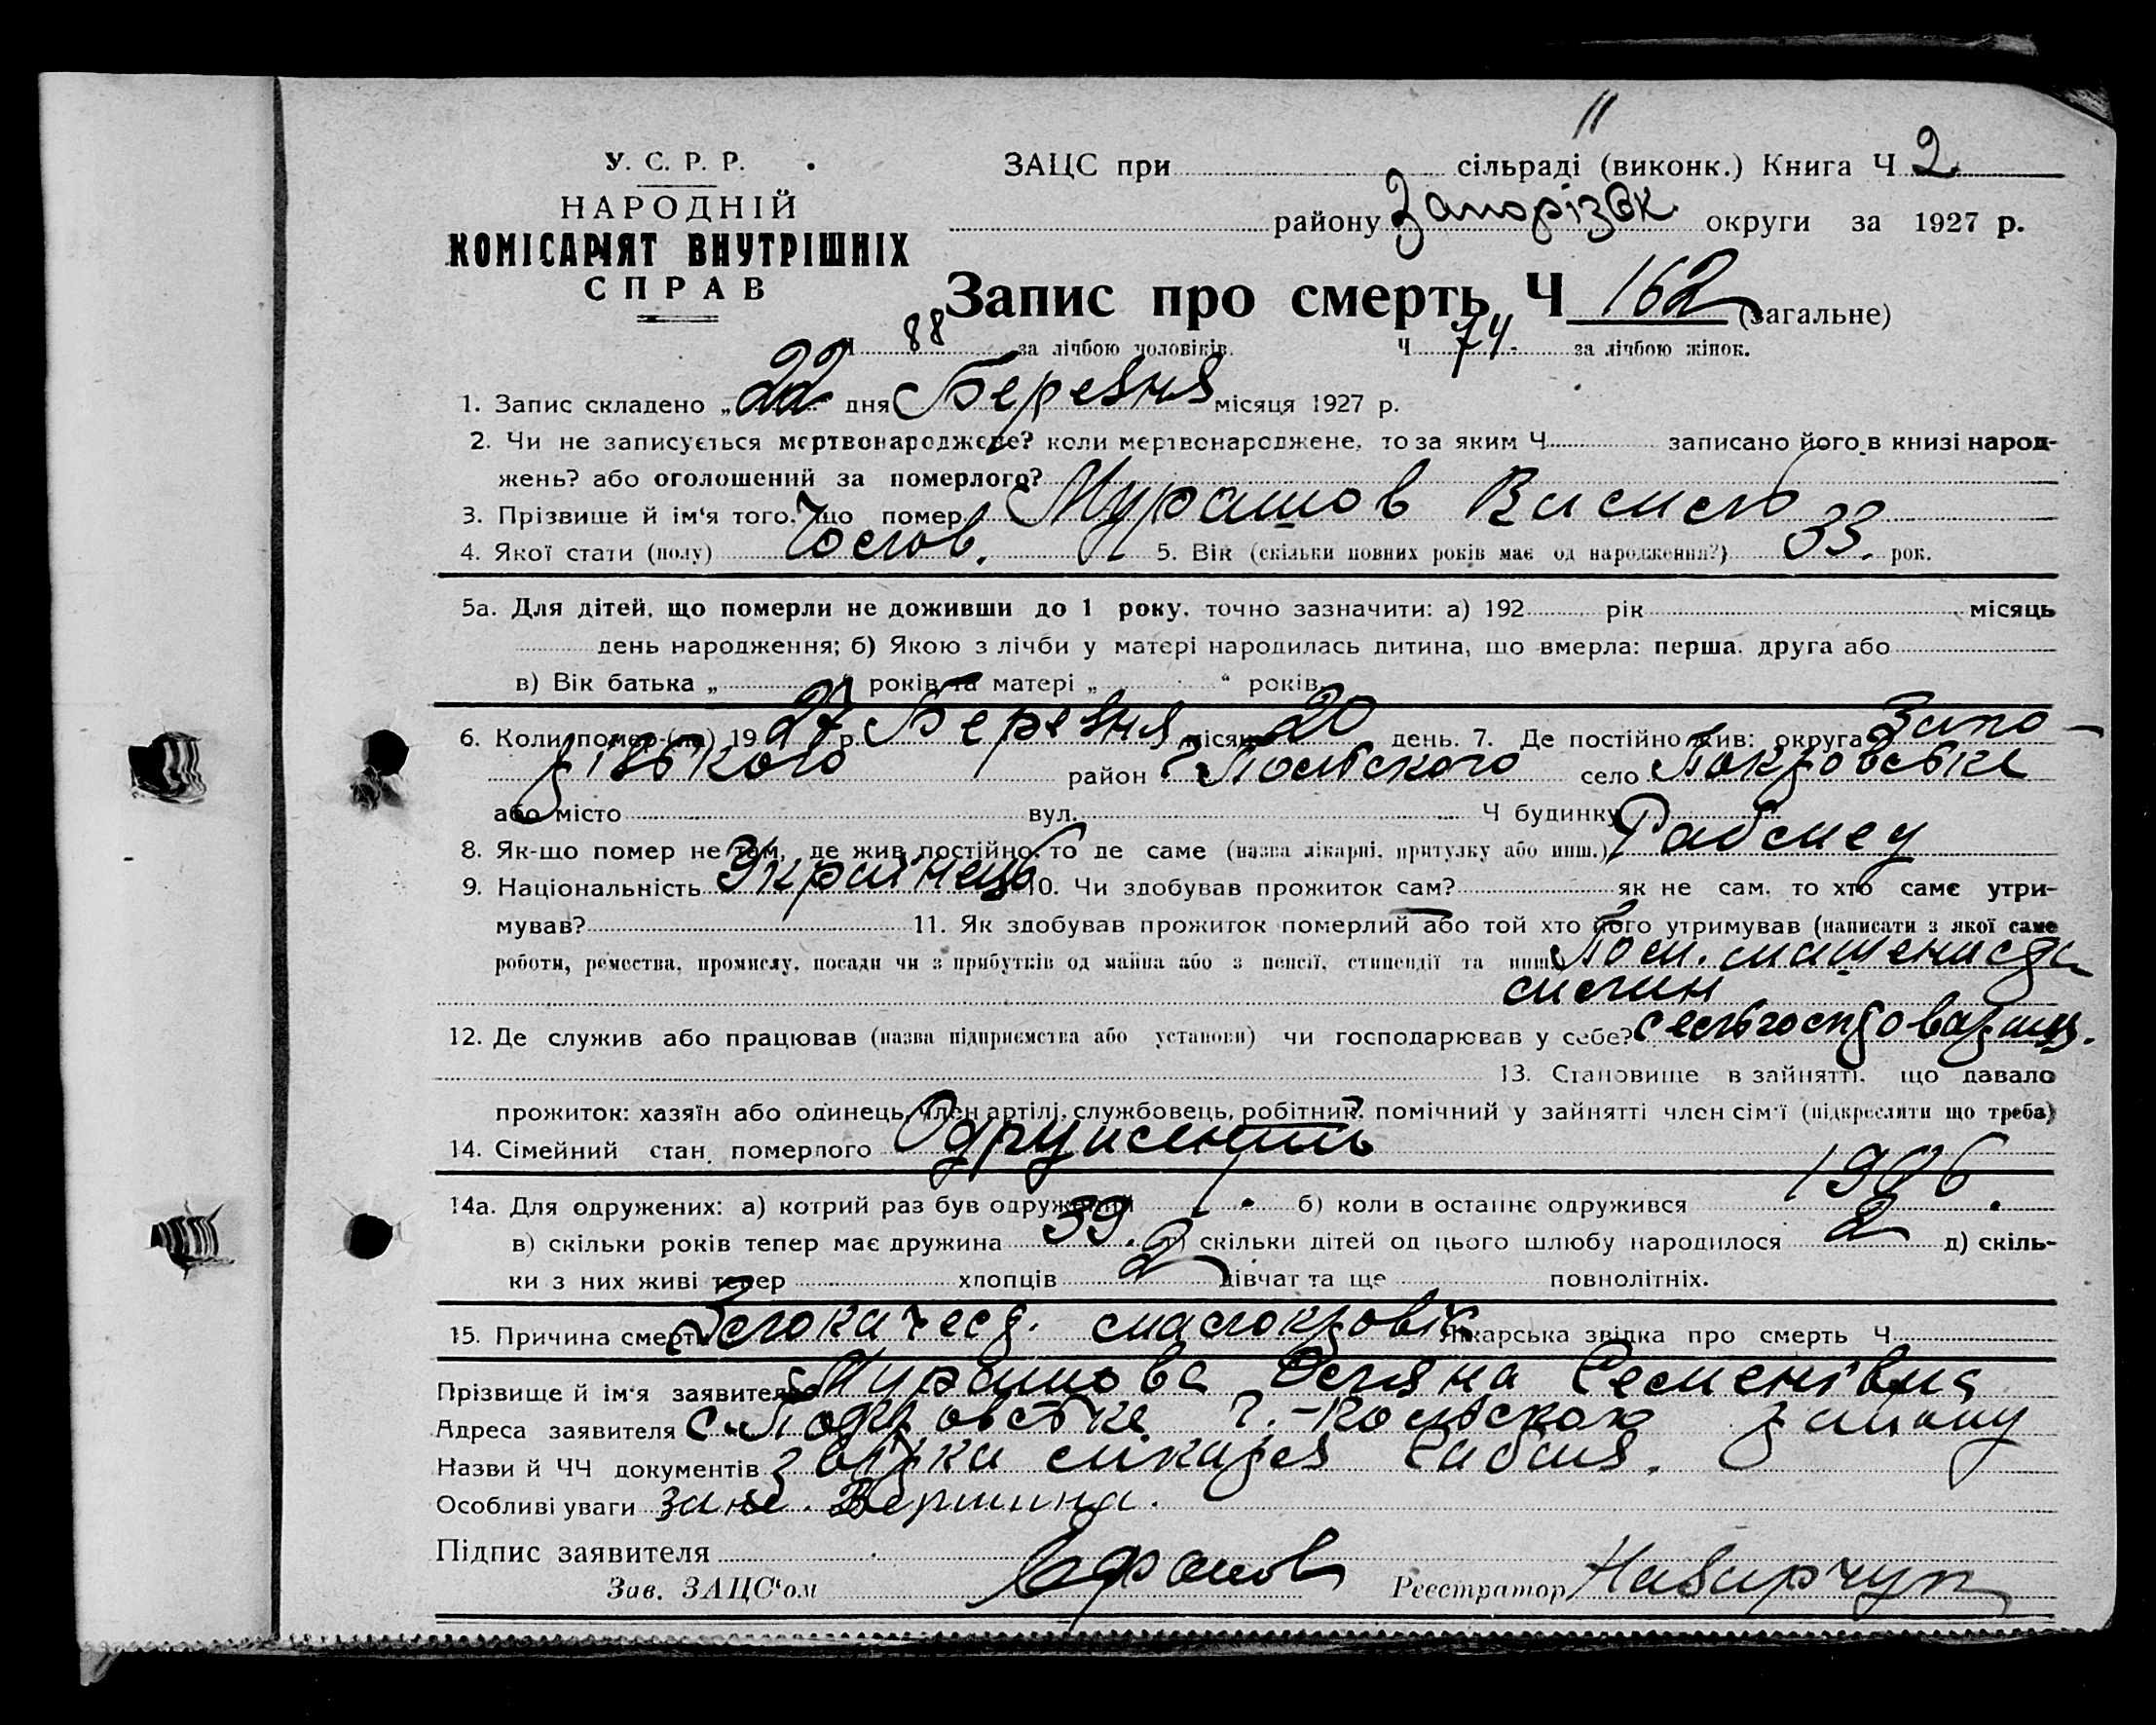 11
У. С. Р. Р.
НАРОДНІЙ
КОМІСАРІЯТ ВНУТРІШНІХ
СПРАВ
ЗАЦС при сільраді (виконк.) Книга Ч 2
району Запорізьк. округи за 1927 р.
Запис про смерть Ч 162 (загальне)
Ч 88 за лічбою чоловіків. Ч 74. за лічбою жінок.
1. Запис складено „22“ дня Березня місяця 1927 р.
2. Чи не записується мертвонароджене? коли мертвонароджене, то за яким Ч записано його в книзі народ-
жень? або оголошений за померлого?
3. Прізвище й ім‘я того, що помер Мурашов Василь
4. Якої стати (полу) Чолов. 5. Вік (скільки повних років має од народження?) 33. рок.
5а. Для дітей, що померли не доживши до 1 року, точно зазначити: а) 192 рік місяць
день народження; б) Якою з лічби у матері народилась дитина, що вмерла: перша, друга або
в) Вік батька „ “ років та матері „ “ років.
6. Коли помер (ла) 1927 р. Березня місяця 20 день. 7. Де постійно жив: округа Запо-
різького район Г Польского село Покровське
або місто вул. Ч будинку
8. Як-що помер не там, де жив постійно, то де саме (назва лікарні, притулку або инш.) Рабмед
9. Національність Українець 10. Чи здобував прожиток сам? як не сам, то хто саме утри-
мував? 11. Як здобував прожиток померлий або той хто його утримував (написати з якої саме
роботи, ремества, промислу, посади чи з прибутків од майна або з пенсії, стипендії та инш.) Пом. машиніста
млин
12. Де служив або працював (назва підприємства або установи) чи господарював у себе?
13. Становище в зайнятті, що давало
прожиток: хазяїн або одинець, член артілі, службовець, робітник, помічний у зайнятті член сім‘ї (підкреслити що треба)
14. Сімейний стан померлого Одружений
14а. Для одружених: а) котрий раз був одружений 1. б) коли в останнє одружився 1906.
в) скільки років тепер має дружина 39. г) скільки дітей од цього шлюбу народилося 2 д) скіль-
ки з них живі тепер хлопців 2 дівчат та ще повнолітніх.
15. Причина смерти Злокачест. малокровія Лікарська звідка про смерть Ч
Прізвище й ім‘я заявителя Мурашова Уляна Семенівна
Адреса заявителя с. Покровське Г.-Польского району
Назви й ЧЧ документів звідка лікаря
Особливі уваги
Підпис заявителя
Зав. ЗАЦС‘ом
Реєстратор